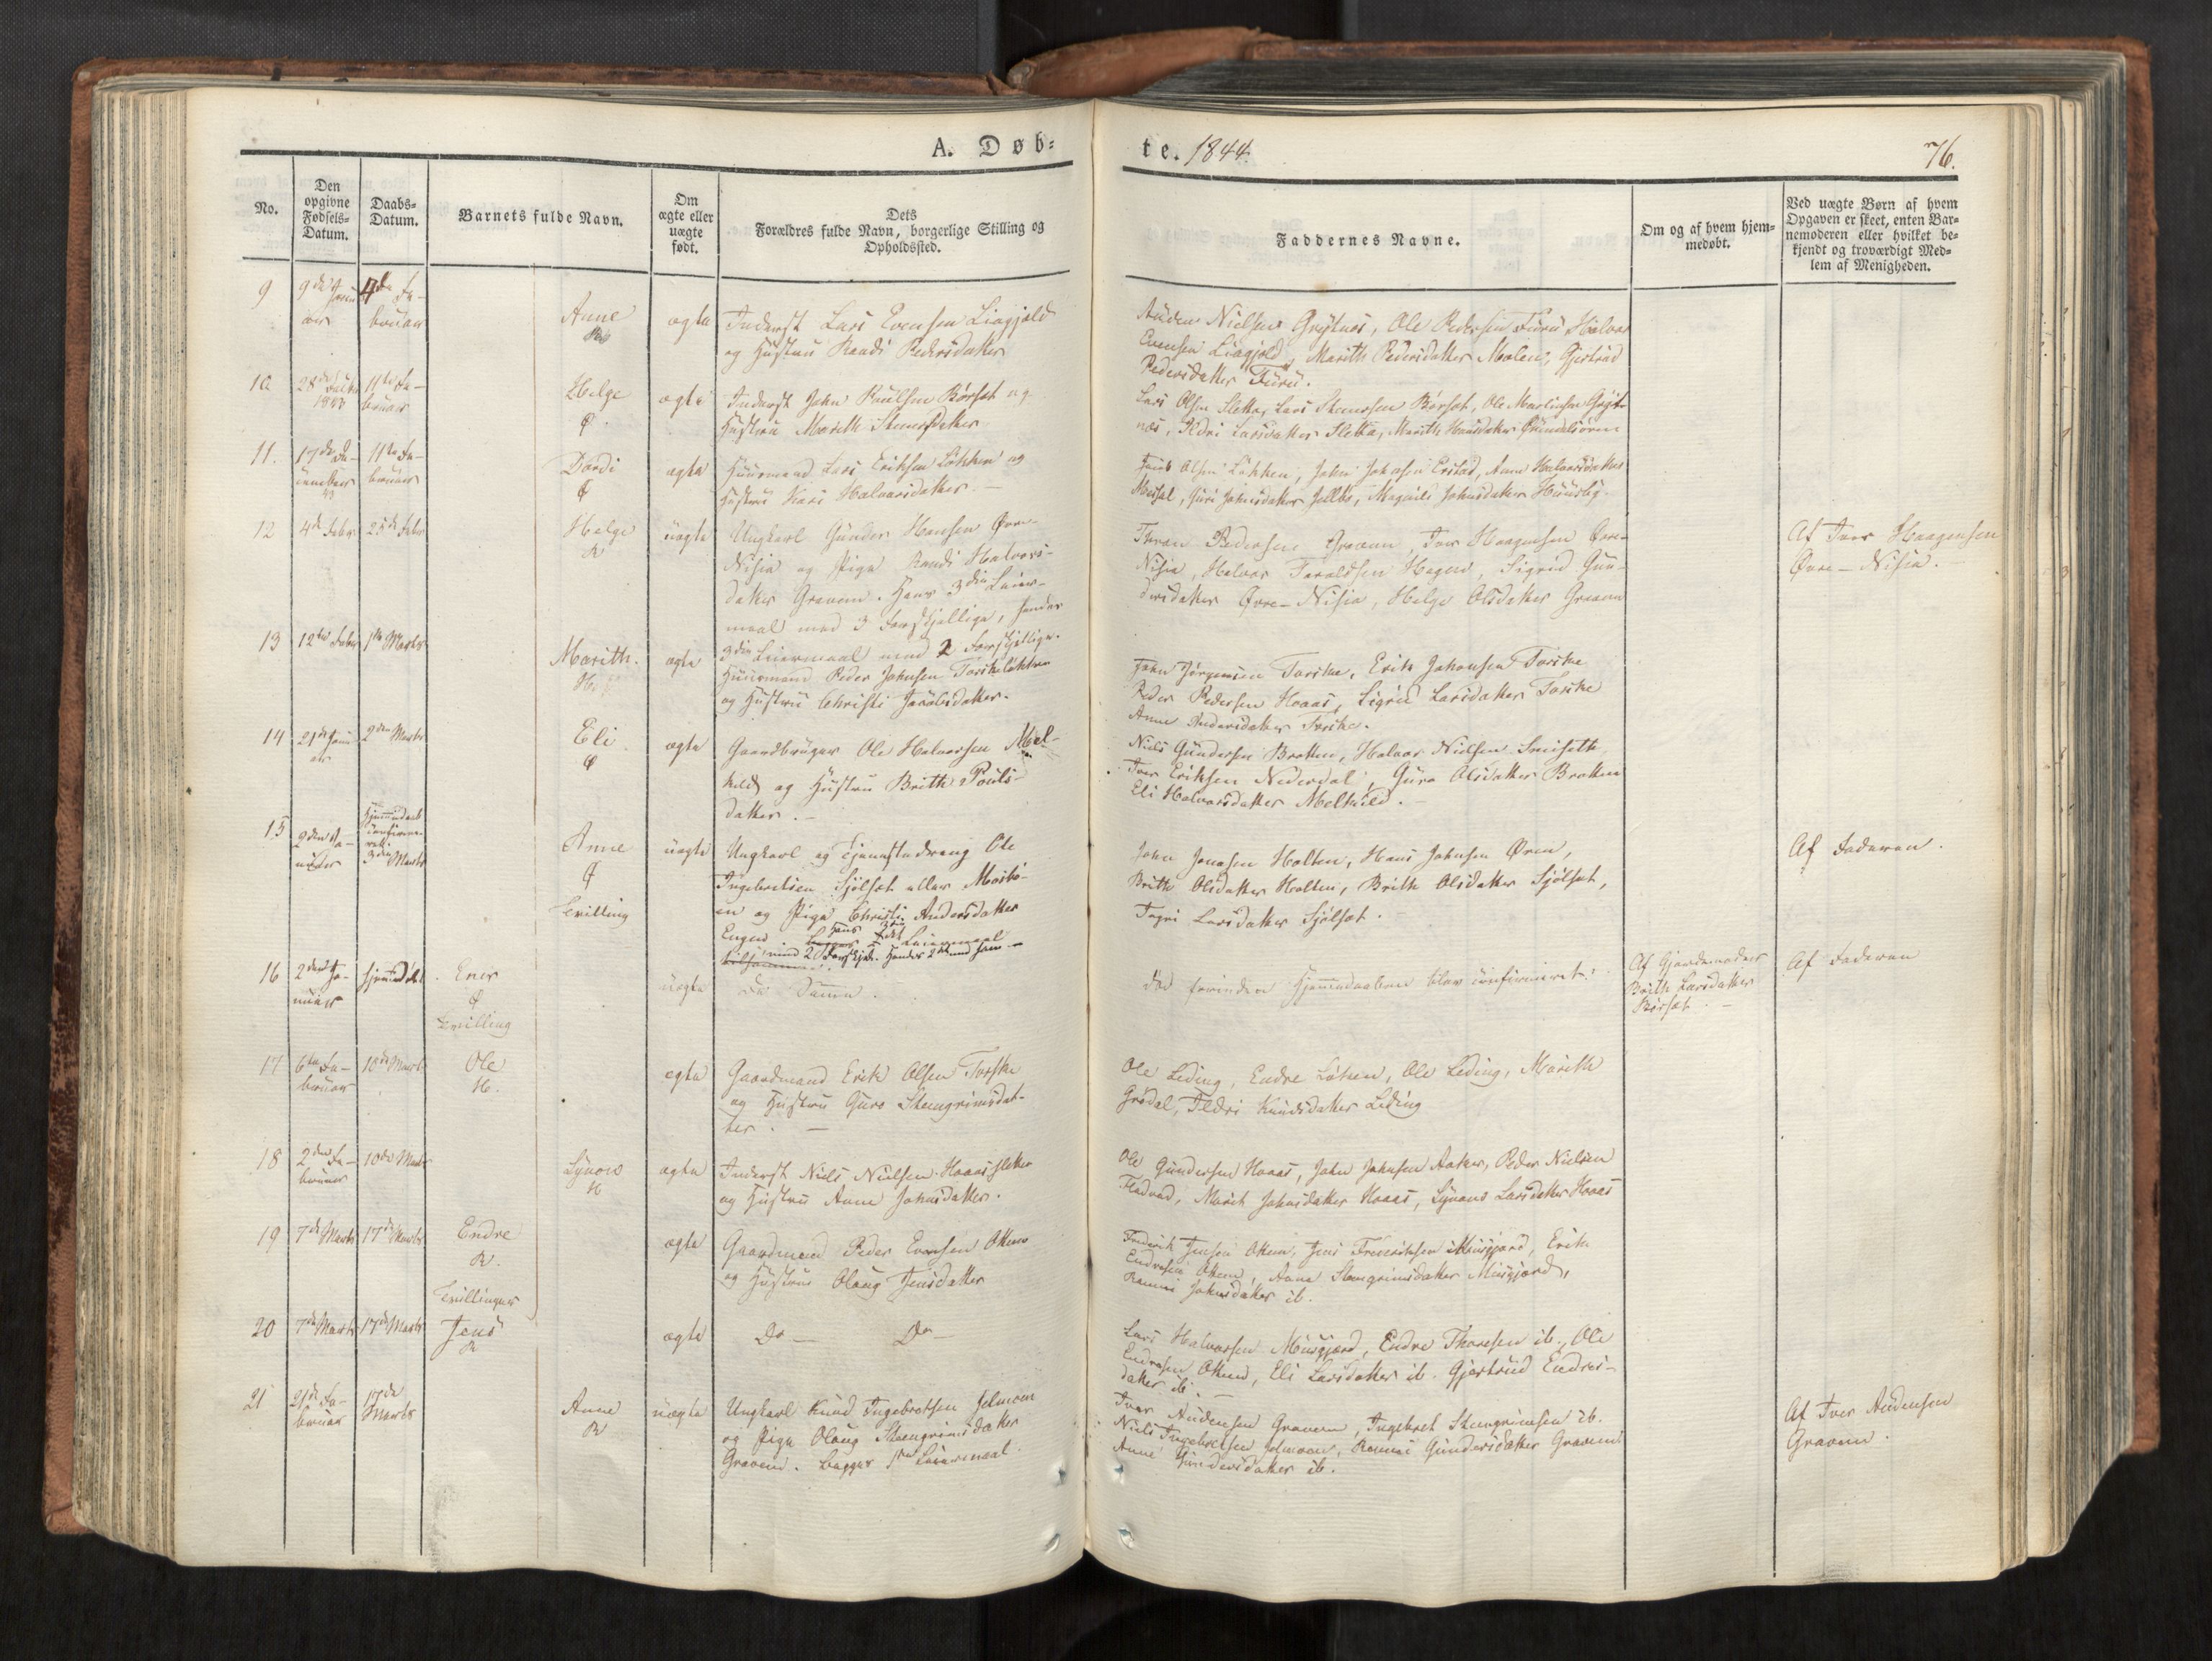 A. Døb=
te. 1844.
76.
No.
Den opgivne Fødsels= Datum.
Daabs= Datum.
Barnets fulde Navn.
Om ægte eller uægte født.
Dets Forældres fulde Navn, borgerlige Stilling og Opholdssted.
Faddernes Navne.
Om og af hvem hjem= medøbt.
Ved uægte Børn af hvem Opgaven er skeet, enten Bar= nemoderen eller hvilket be= kjendt og troværdigt Med= lem af Menigheden.
9
9de Janu
ar
4de Fe-
bruar
Anne
ægte
Inderst Lars Evensen Liagjeld
og Hustru Randi Pedersdatter
Auden Nielsen Grøtnes, Ole Pedersen Furu Halvor
Evensen Liagjeld, Marith Pedersdatter Moelen, Gjertrud
Pedersdatter Furu.
10
28de
1843
11te Fe-
bruar
Helge
ægte
Inderst John Poulsen Børset og
Hustru Marith Steners Datter
Lars Olsen Sletta, Lars Stenersen Børset, Ole
Ildri Larsdatter Sletta, Marith Hansdatter
11.
17de De-
cember
43
11te Fe-
bruar
Dordi
ægte
Huusmand Lars Eriksen Løkken og
Hustru Kari Halvorsdatter. —
Olsen Løkken, John Johnsen
Guri Johnsdatter Magnild Johnsdatter Huusby.
12
4de Febr
25de Febr
Helge
R
uægte
Ungkarl Gunder Hansen Øvre-
Nisia og Pige Randi Halvors-
datter Gravem. Hans 3die Leier-
maal med 3 Forskjellige, hendes
3die Leiermaal med 2 Forskjellige.
Pedersen Gravem, Iver Haagensen Øvre-
Nisia, Halvor Taraldsen Hagen, Sigrid Gun-
dersdatter Øvre-Nisia, Helge Olsdatter Gravem
Af Iver Haagensen
Øvre-Nisia. —
13
12te Febr
1ste Marts
Marith.
H
ægte
Huusmand Peder Johnsen Torskeløkken
og Hustru Christi
John Jørgensen Torske, Erik Johansen Torske
Peder Pedersen Hoaas, Sigrid Larsdatter Torske
Anne Andersdatter Torske.
14
21de Janu
ar
2den Marts
Eli
ægte
Gaardbruger Ole Halvorsen Mel-
hild og Hustru Brith Pouls-
datter. —
Niels Gundersen Bratten, Halvor Nielsen Smiseth
Iver Eriksen Nederdal, Guro Olsdatter Bratten
Eli Halvorsdatter Melhild. —
15
2den Ja-
nuar
Hjemmedaab
confirme-
ret
3die Marts
Anne
Tvilling
uægte
Ungkarl og Tjenestedreng Ole
Ingebretsen Sjølset eller Morbø-
en og Pige Christi Andersdatter
Engen. Hans 3die Leiermaal
med 2 Forskjel. Hendes 2det med ham —
John Jonasen Holten, Hans Johnsen Øren,
Brith Olsdatter Holten, Brith Olsdatter Sjølset,
Larsdatter Sjølset. —
Af Faderen.
16
2den Ja-
nuar
hjemmedøbt
Ener
Tvilling
uægte
De Samme.
Død forinden Hjemmedaaben blev confirmeret.
Af Gjordemoder
Brith Larsdatter
Børset. —
Af Faderen
17
6te Fe-
bruar
10de Marts
Ole
H.
ægte
Gaardmand Erik Olsen Torske
og Hustru Guro Steengrimsdat-
ter. —
Ole Leding, Endre Løken, Ole Leding, Marith
Grødal, Ildri Knudsdatter Leding
18
2den Fe-
bruar
10de Marts
Synove
H
ægte
Inderst Niels Nielsen Hoaassletten
og Hustru Anne Johnsdatter.
Ole Gundersen Hoaas, John Johnsen Aaker, Peder Nielsen
Fladvad, Marit Johnsdatter Hoaas, Synove Larsdatter Hoaas
19
7de Marts
17de Marts
Endre
R.
Tvillinger
ægte
Gaardmand Peder Evensen Oken
og Hustru Oloug Jensdatter
Frederik Jensen Oken, Jens Frederiksen Musgjærd, Erik
Endresen Oken, Anne Steengrimsdatter Musgjærd,
Johnsdatter ib.
20
7de Marts
17de Marts
Jens
R
ægte
Do — Do —
Lars Halvorsen Musgjærd, Endre Thoresen ib. Ole
Endresen Oken, Eli Larsdatter ib. Gjertrud Endres-
datter ib. —
21
21de Fe-
bruar
17de
Marts
Anne
R
uægte
Ungkarl Knud Ingebretsen Jelmoen
og Pige Oloug Steengrimsdatter
Gravem. Begges 1ste Leiermaal.
Iver Audensen Gravem, Ingebret Steengrimsen ib.
Niels Ingebretsen Jelmoen, Gundersdatter Gravem
Anne Gundersdatter ib.
Af Iver Audensen
Gravem.